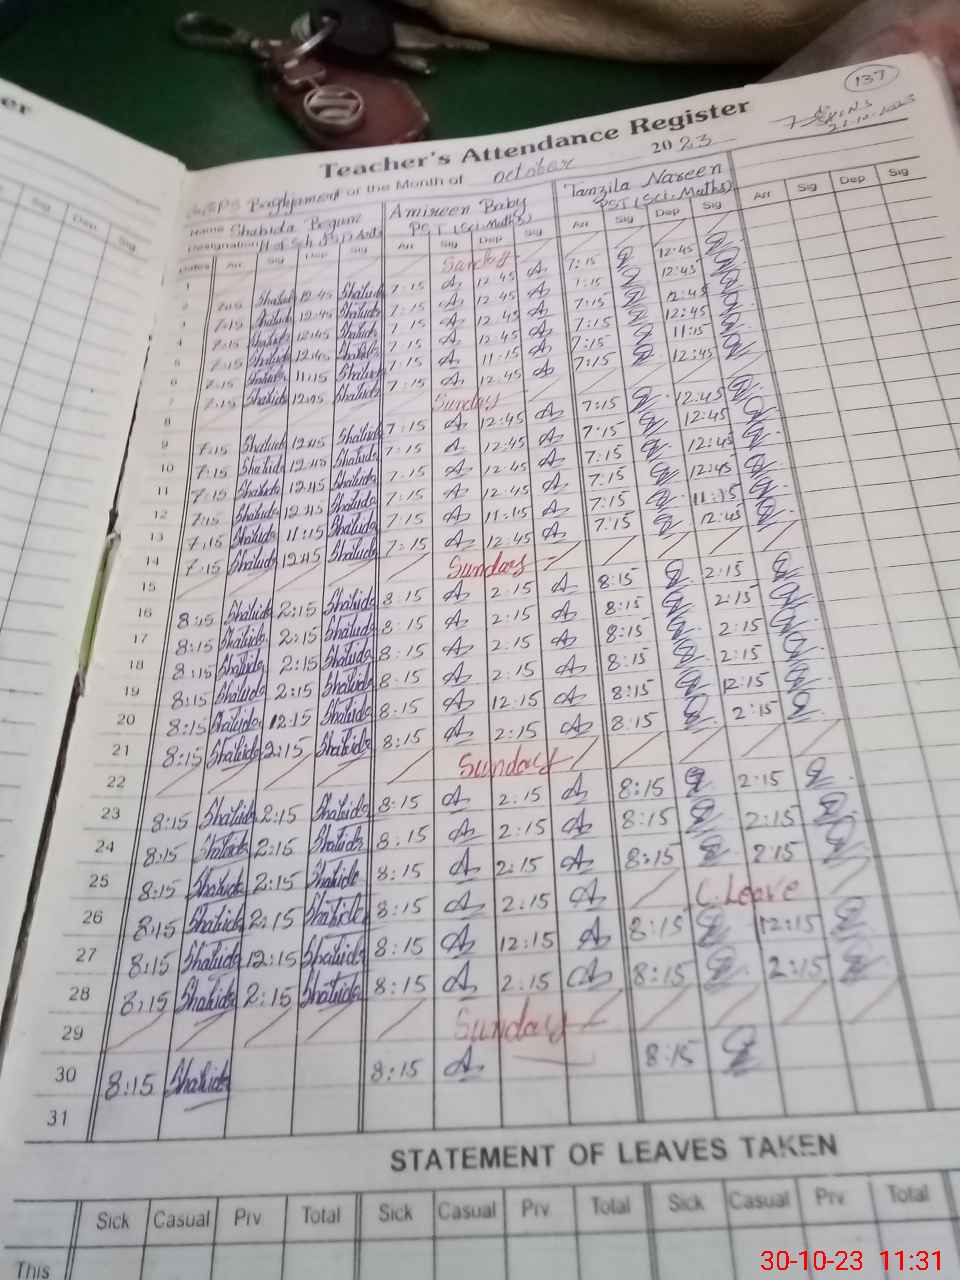 er
137
Teacher's Attendance Register
For the Month of October 2023
Name Shahida Begum Amireen Baby Tanzila Nareen
Designation PST (Sci.Maths) PST (Sci.Maths)
Dates Arr Sig Dep Sig Arr Sig Dep Sig Arr Sig Dep Sig Arr Sig Dep Sig
1 Sunday
2 7:15 Shahida 12:45 Shahida 7:15 A 12:45 A 7:15 12:45
3 7:15 Shahida 12:45 Shahida 7:15 A 12:45 A 7:15 12:45
4 7:15 Shahida 12:45 Shahida 7:15 A 12:45 A 7:15 12:45
5 7:15 Shahida 12:45 Shahida 7:15 A 12:45 A 7:15 12:45
6 7:15 Shahida 11:15 Shahida 7:15 A 11:15 A 7:15 11:15
7 7:15 Shahida 12:45 Shahida 7:15 A 12:45 A 7:15 12:45
8 Sunday
9 7:15 Shahida 12:45 Shahida 7:15 A 12:45 A 7:15 12:45
10 7:15 Shahida 12:45 Shahida 7:15 A 12:45 A 7:15 12:45
11 7:15 Shahida 12:45 Shahida 7:15 A 12:45 A 7:15 12:45
12 7:15 Shahida 12:45 Shahida 7:15 A 12:45 A 7:15 12:45
13 7:15 Shahida 11:15 Shahida 7:15 A 11:15 A 7:15 11:15
14 7:15 Shahida 12:45 Shahida 7:15 A 12:45 A 7:15 12:45
15 Sunday
16 8:15 Shahida 2:15 Shahida 8:15 A 2:15 A 8:15 2:15
17 8:15 Shahida 2:15 Shahida 8:15 A 2:15 A 8:15 2:15
18 8:15 Shahida 2:15 Shahida 8:15 A 2:15 A 8:15 2:15
19 8:15 Shahida 2:15 Shahida 8:15 A 2:15 A 8:15 2:15
20 8:15 Shahida 12:15 Shahida 8:15 A 12:15 A 8:15 12:15
21 8:15 Shahida 2:15 Shahida 8:15 A 2:15 A 8:15 2:15
22 Sunday
23 8:15 Shahida 2:15 Shahida 8:15 A 2:15 A 8:15 2:15
24 8:15 Shahida 2:15 Shahida 8:15 A 2:15 A 8:15 2:15
25 8:15 Shahida 2:15 Shahida 8:15 A 2:15 A 8:15 2:15
26 8:15 Shahida 2:15 Shahida 8:15 A 2:15 A C.Leave
27 8:15 Shahida 12:15 Shahida 8:15 A 12:15 A 8:15 12:15
28 8:15 Shahida 2:15 Shahida 8:15 A 2:15 A 8:15 2:15
29 Sunday
30 8:15 Shahida 8:15 A 8:15
31
STATEMENT OF LEAVES TAKEN
Sick Casual Prv Total Sick Casual Prv Total Sick Casual Prv Total
This
30-10-23 11:31